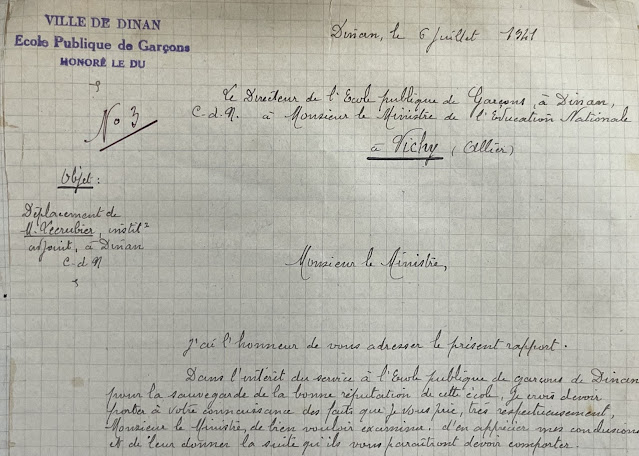 VILLE DE DINAN
Ecole Publique de Garçons
HONORÉ LE DU
Dinan, le 6 juillet 1941
Le Directeur de l'Ecole publique de Garçons, à Dinan,
C-d-N. à Monsieur le Ministre de l'Education Nationale
à Vichy (Allier)
No 3
Objet :
Déplacement de
M. Lecrubier, instit.r
adjoint, à Dinan
C-d-N
Monsieur le Ministre,
J'ai l'honneur de vous adresser le présent rapport.
Dans l'intérêt du service à l'Ecole publique de garçons de Dinan
pour la sauvegarde de la bonne réputation de cette école, je crois devoir
porter à votre connaissance des faits que je vous prie, très respectueusement,
Monsieur le Ministre, de bien vouloir examiner, d'en apprécier mes conclusions
et de leur donner la suite qu'ils vous paraîtront devoir comporter.